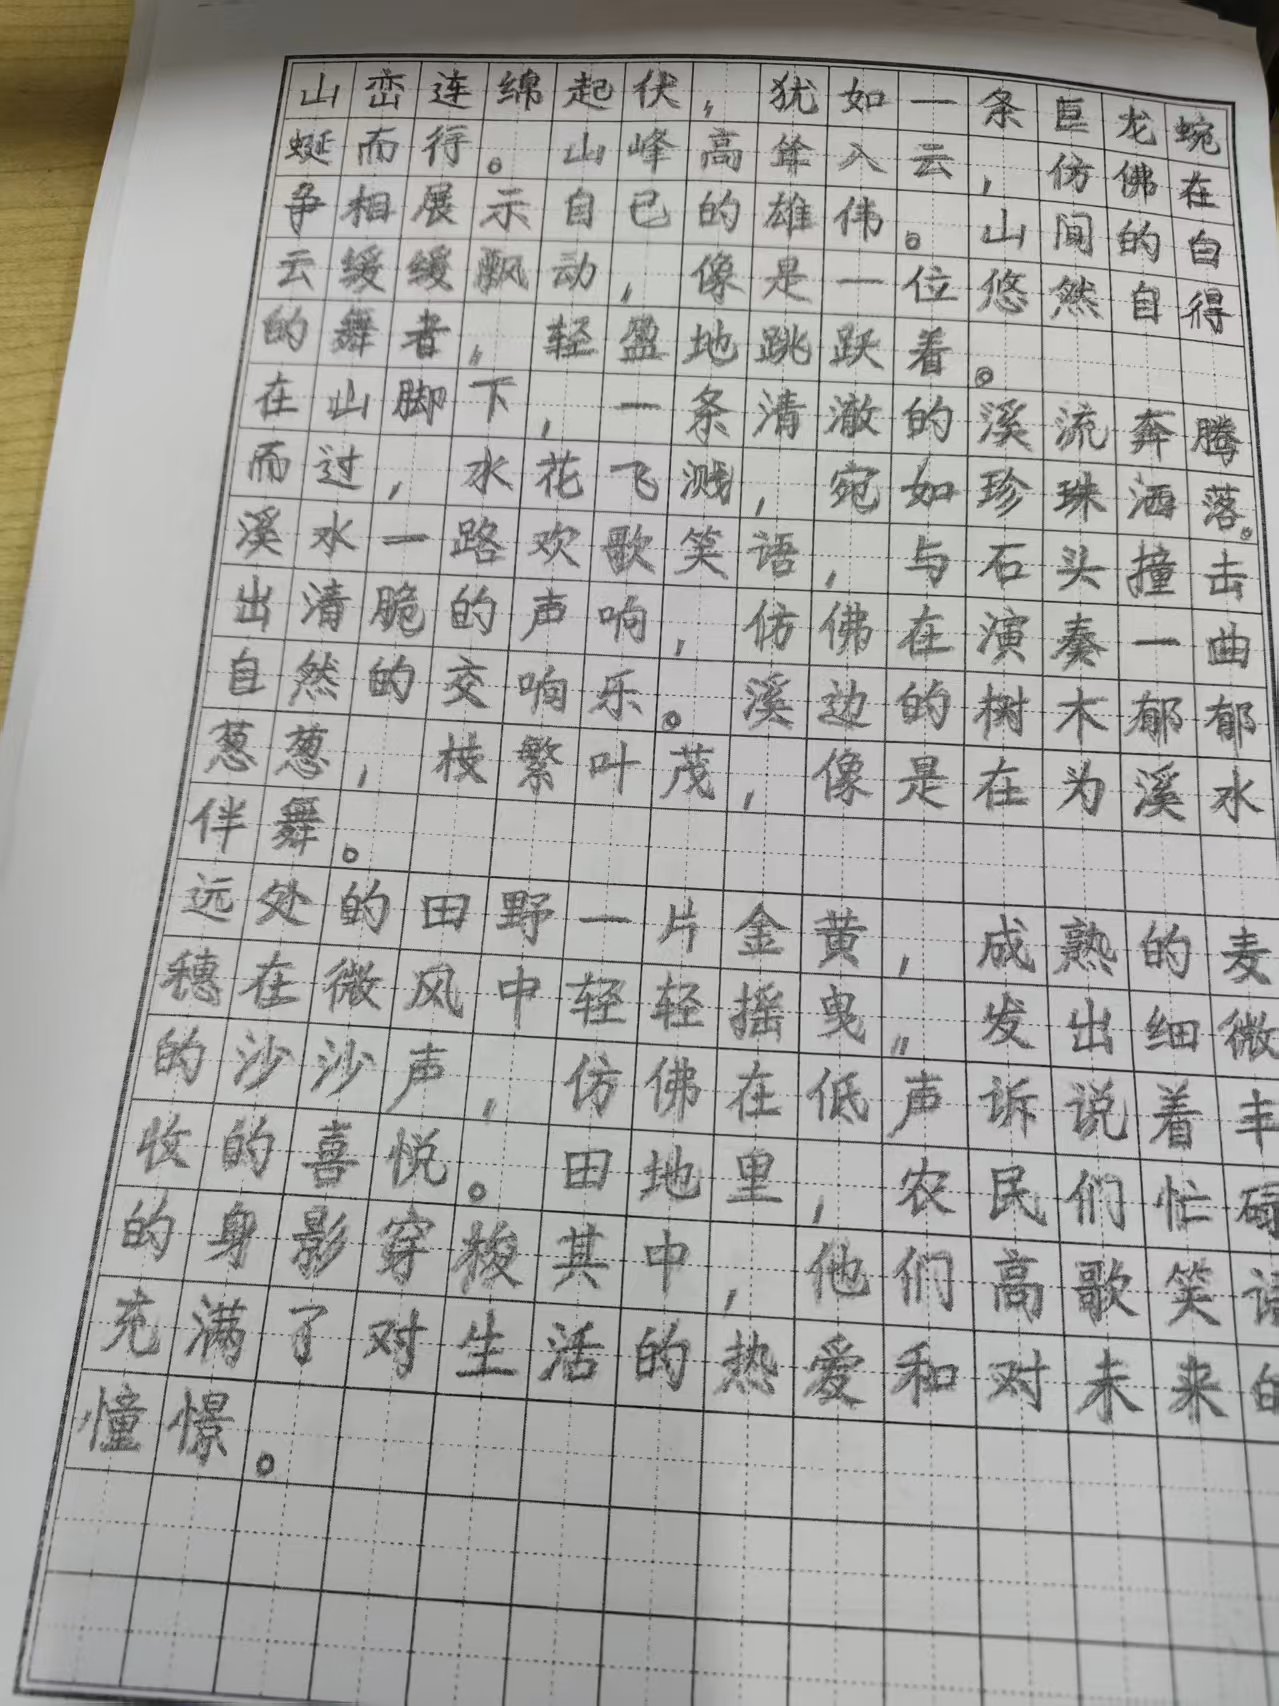 山峦连绵起伏，犹如一条巨龙蜿
蜒而行。山峰高耸入云，仿佛在
争相展示自己的雄伟。山间的白
云缓缓飘动，像是一位悠然自得
的舞者，轻盈地跳跃着。
在山脚下，一条清澈的溪流奔腾
而过，水花飞溅，宛如珍珠洒落。
溪水一路欢歌笑语，与石头撞击
出清脆的声响，仿佛在演奏一曲
自然的交响乐。溪边的树木郁郁
葱葱，枝繁叶茂，像是在为溪水
伴舞。
远处的田野一片金黄，成熟的麦
穗在微风中轻轻摇曳，发出细微
的沙沙声，仿佛在低声诉说着丰
收的喜悦。田地里，农民们忙碌
的身影穿梭其中，他们高歌笑语
充满了对生活的热爱和对未来的
憧憬。